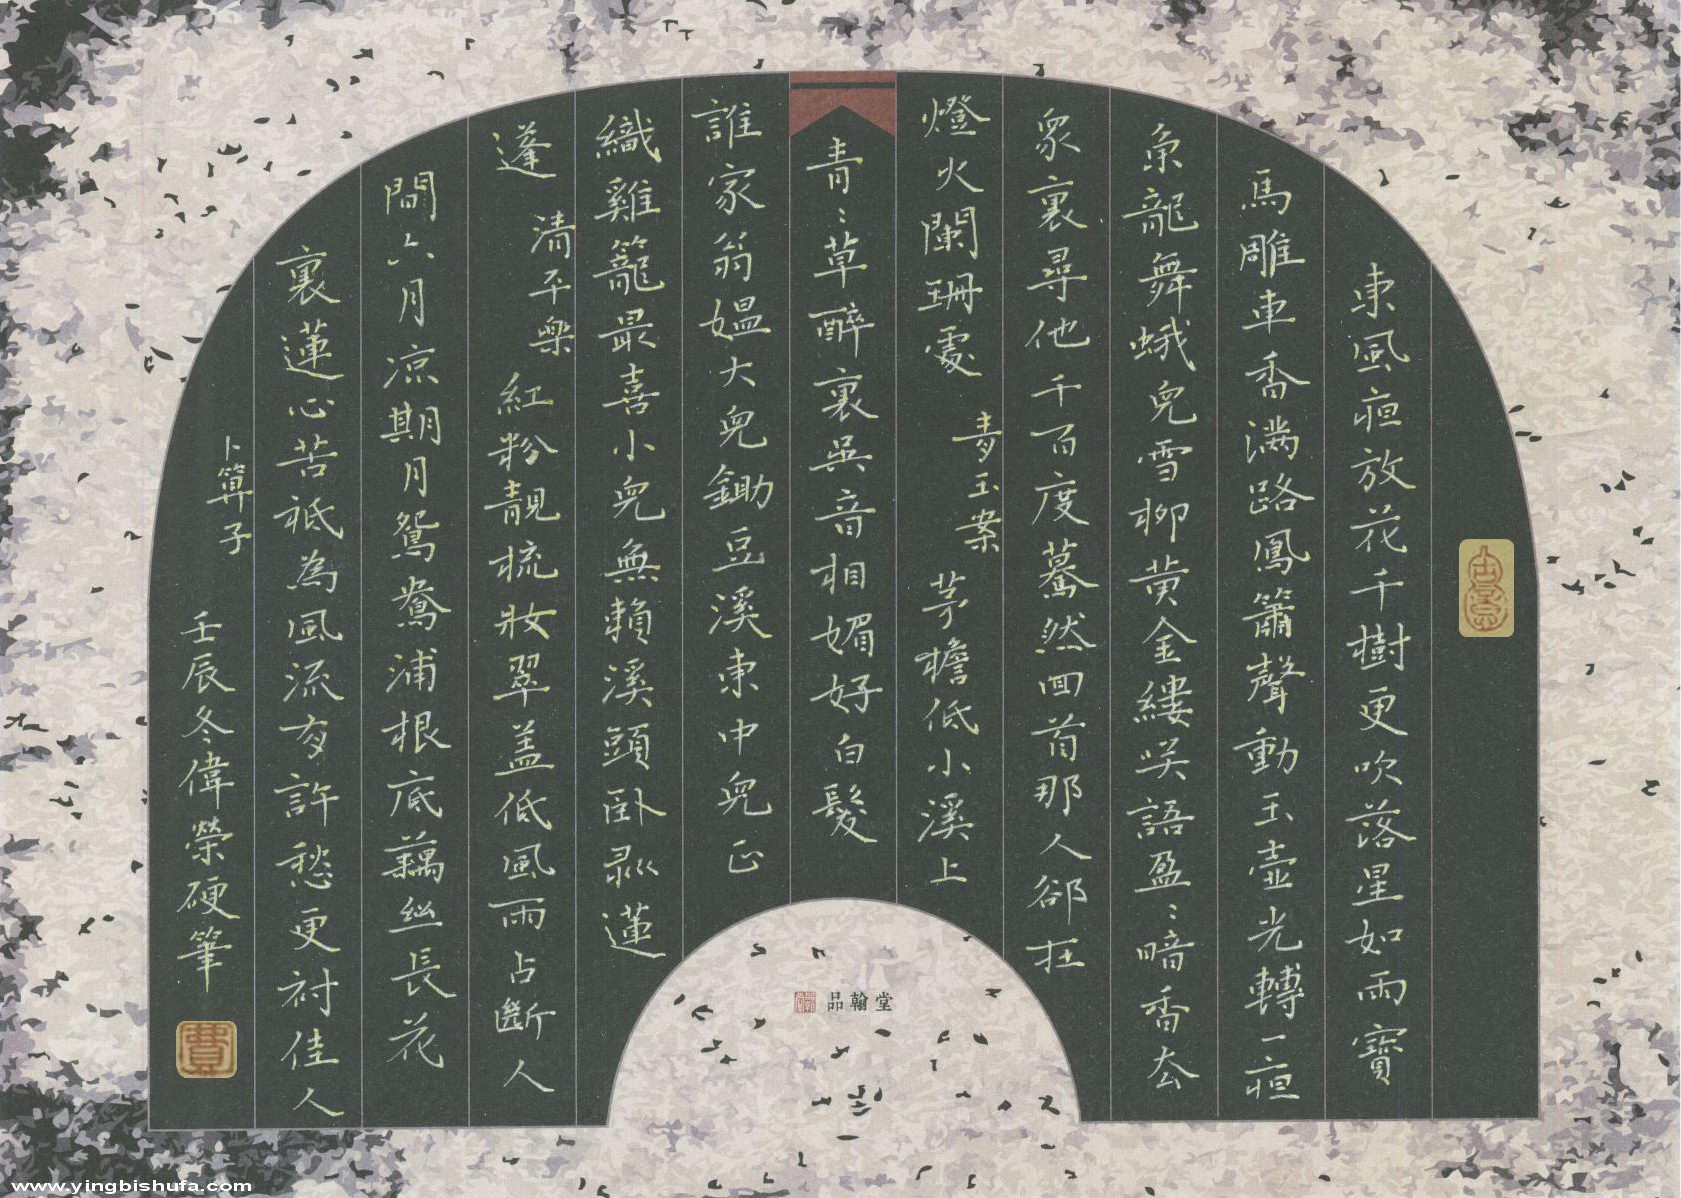 東風夜放花千樹更吹落星如雨寶
馬雕車香滿路鳳簫聲動玉壺光轉一夜
魚龍舞蛾兒雪柳黃金縷笑語盈〻暗香去
眾裏尋他千百度驀然回首那人卻在
燈火闌珊處 青玉案 茅檐低小溪上
青〻草醉裏吳音相媚好白髮
誰家翁媼大兒鋤豆溪東中兒正
織雞籠最喜小兒無賴溪頭臥剝蓮
蓬 清平樂 紅粉靚梳妝翠蓋低風雨占斷人
間六月凉期月鴛鴦浦根底藕絲長花
裏蓮心苦祗為風流有許愁更衬佳人
卜算子 壬辰冬偉榮硬筆
費
品翰堂
www.yingbishufa.com